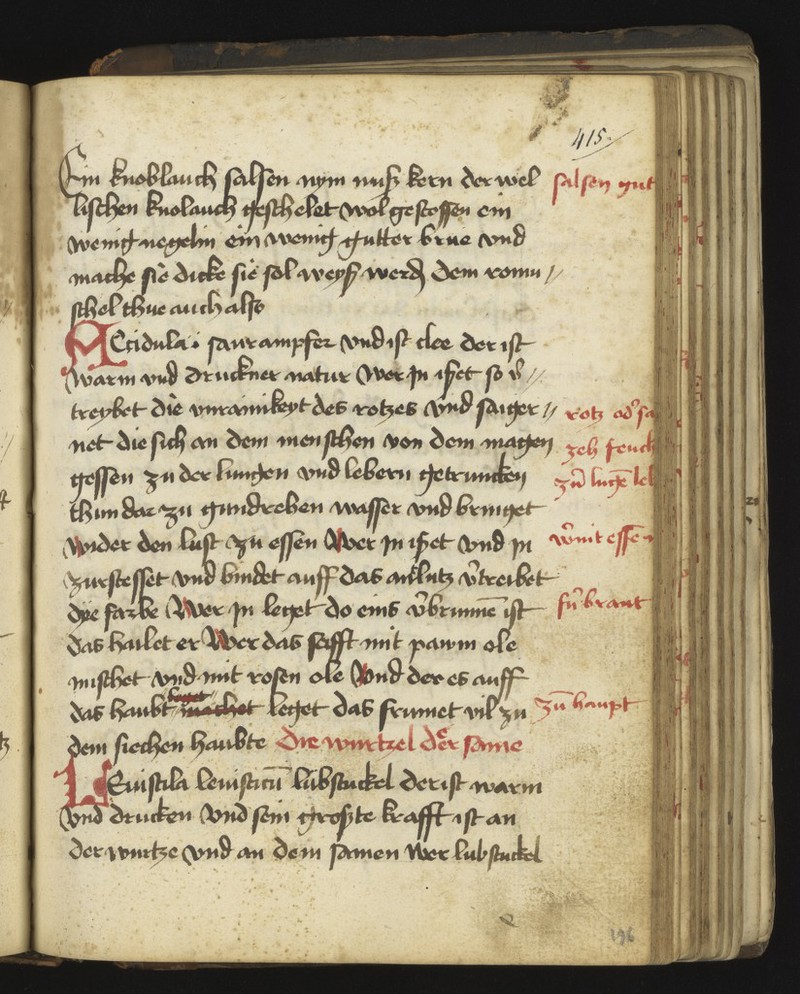 415.
Ein knoblauch salsen nym nuß kern der wel
salsen gut
lischen knolauch geschelet wol gestossen ein
wenig negelin ein wenig gutter brue vnd
mache sie dicke sie sol weyß werdn dem romu //
schel thue auch also
ACcidula i saurampfer vnd ist clee der ist
warm vnd druckner natur Wer jn isset so v̄ //
treybet die vnrainikeyt des rotzes vnd saiger //
rotz od sa
net die sich an dem menschen von dem magen
zeh feuch
gessen zu der lungen vnd lebern getruncken
zu lūge leb
thun dar zu gundreben wasser vnd bringet
wider den lust zu essen Wer jn isset vnd jn
v̄nit essen
zurstesset vnd bindet auff das antlutz v̄treibet
dye farbe Wer jn leget do eins v̄brunnē ist
fu᷑ brant
das hailet er Wer das safft mit pawm ole
mischet vnd mit rosen ole Vnd der es auff
das haubt machet leget das frumet vil zu
zū haupt
dem siechen haubte Die wurtzel der same
LEuistila leuisticū lubstuckel der ist warm
vnd drucken Vnd sein großte krafft ist an
der wurtze vnd an dem samen Wer lubstuckel
196